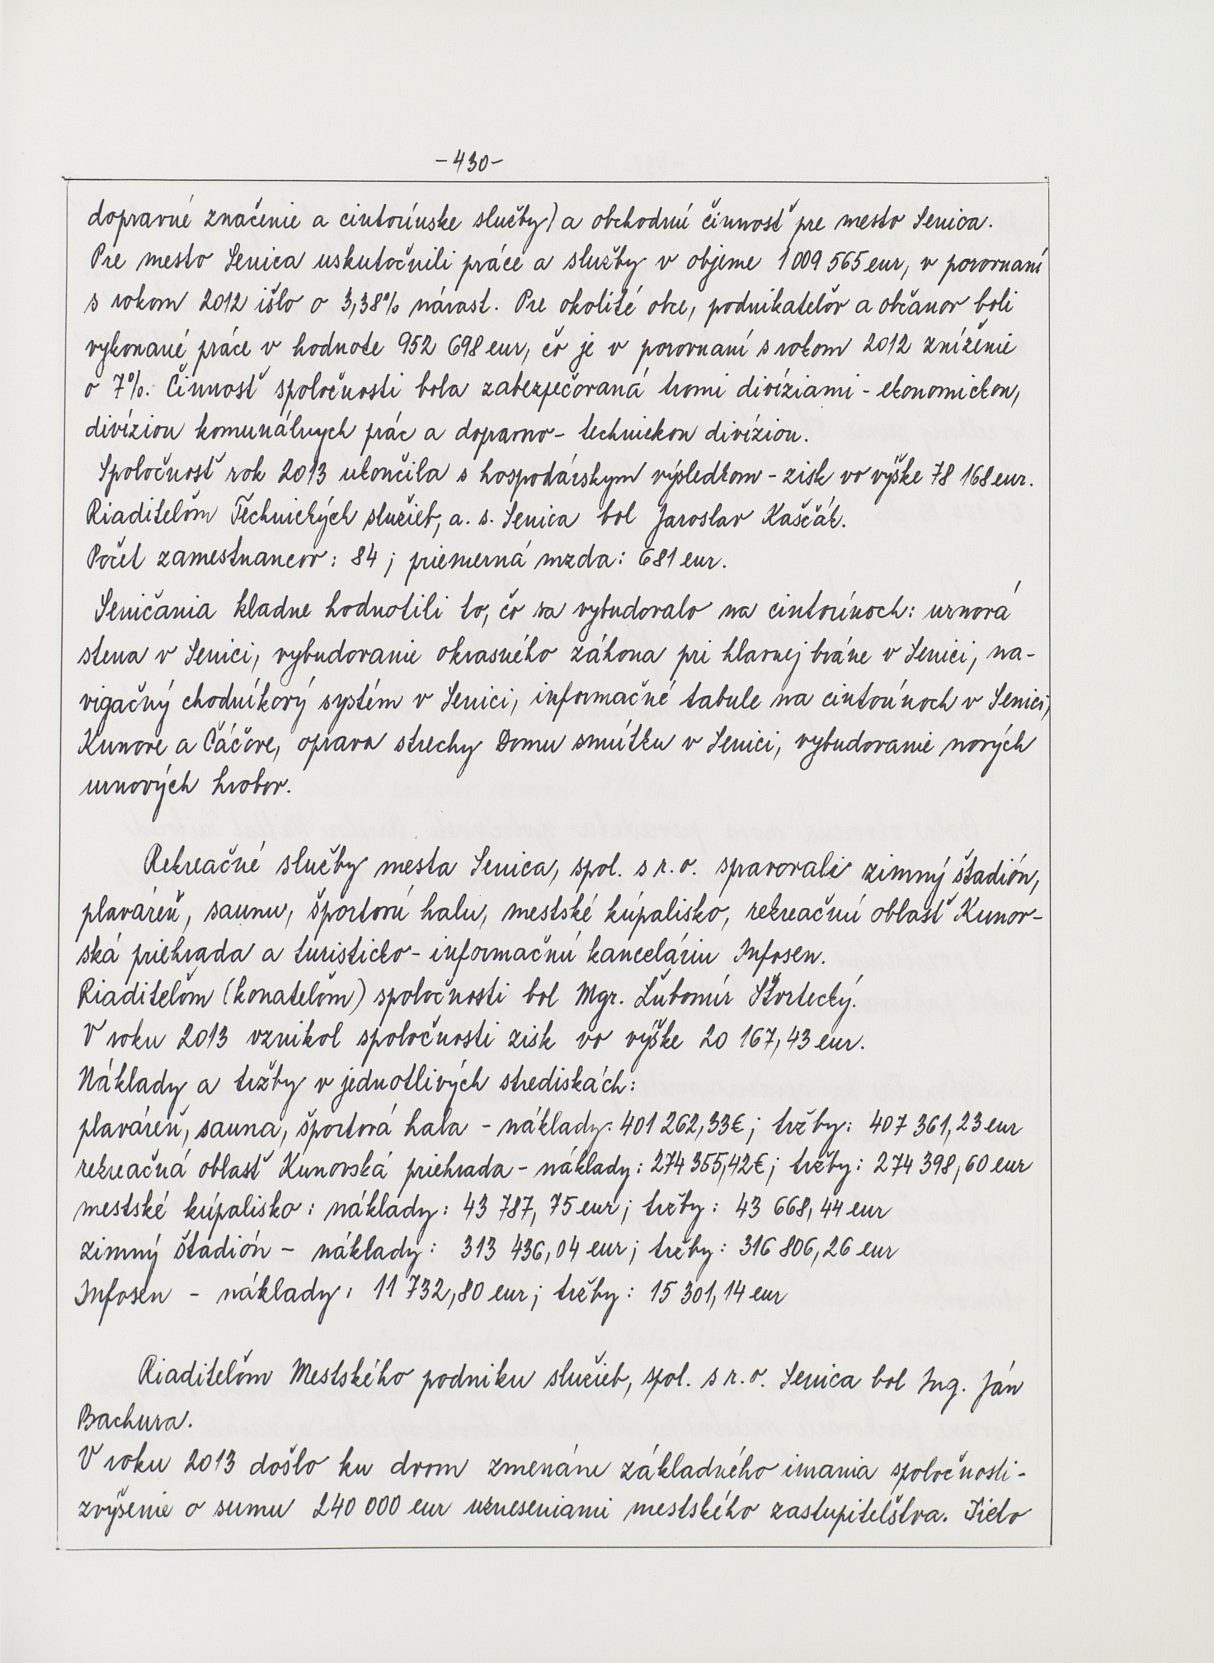 -430-
dopravné značenie a cintorínske služby) a obchodnú činnosť pre mesto Senica.
Pre mesto Senica uskutočnili práce a služby v objeme 1 009 565 eur, v porovnaní
s rokom 2012 išlo o 3,38% nárast. Pre okolité obce, podnikateľov a občanov boli
vykonané práce v hodnote 952 698 eur, čo je v porovnaní s rokom 2012 zníženie
o 7%. Činnosť spoločnosti bola zabezpečovaná tromi divíziami - ekonomickou,
divíziou komunálnych prác a dopravno - technickou divíziou.
Spoločnosť rok 2013 ukončila s hospodárskym výsledkom - zisk vo výške 78 168 eur.
Riaditeľom Technických služieb, a. s. Senica bol Jaroslav Kaščák.
Počet zamestnancov: 84; priemerná mzda: 681 eur.
Seničania kladne hodnotili to, čo sa vybudovalo na cintorínoch: urnová
stena v Senici, vybudovanie okrasného záhona pri hlavnej bráne v Senici, na-
vigačný chodníkový systém v Senici, informačné tabule na cintorínoch v Senici,
Kunove a Čáčove, oprava strechy Domu smútku v Senici, vybudovanie nových
urnových hrobov.
Rekreačné služby mesta Senica, spol. s r. o. spravovali zimný štadión,
plaváreň, saunu, športovú halu, mestské kúpalisko, rekreačnú oblasť Kunov-
ská priehrada a turisticko - informačnú kanceláriu Infosen.
Riaditeľom (konateľom) spoločnosti bol Mgr. Ľubomír Štvrtecký.
V roku 2013 vznikol spoločnosti zisk vo výške 20 167,43 eur.
Náklady a tržby v jednotlivých strediskách:
plaváreň, sauna, športová hala - náklady: 401 262,33€; tržby: 407 361,23 eur
rekreačná oblasť Kunovská priehrada - náklady: 274 355,42€; tržby: 274 398,60 eur
mestské kúpalisko: náklady: 43 787,75 eur; tržby: 43 668,44 eur
zimný štadión - náklady: 313 436,04 eur; tržby: 316 806,26 eur
Infosen - náklady: 11 732,80 eur; tržby: 15 301,14 eur
Riaditeľom Mestského podniku služieb, spol. s r. o. Senica bol Ing. Ján
Bachura.
V roku 2013 došlo ku dvom zmenám základného imania spoločnosti -
zvýšenie o sumu 240 000 eur uzneseniami mestského zastupiteľstva. Tieto